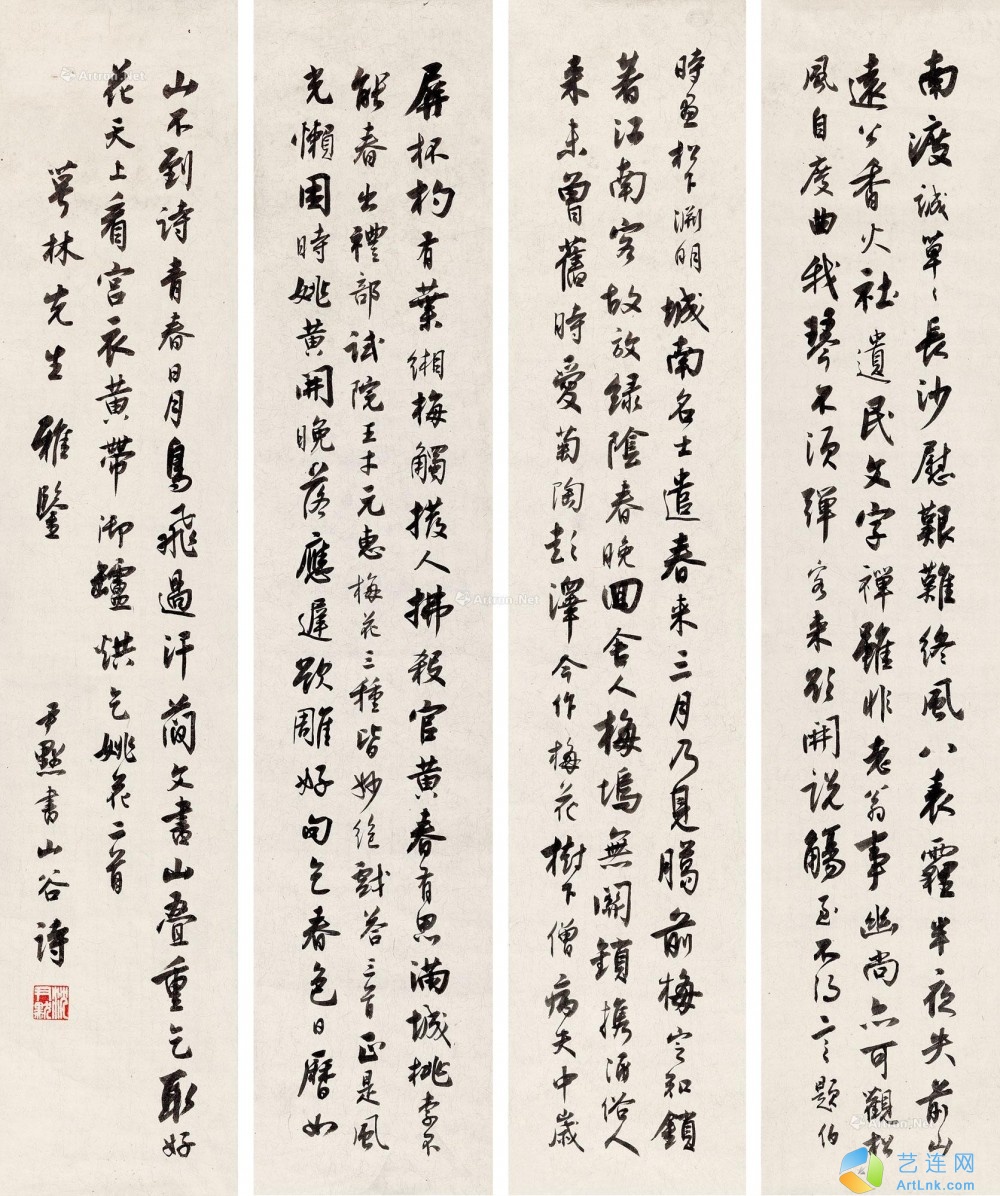 南渡誠草〻長沙慰艱難終風八表霾半夜失前山
遠公香火社遺民文字禪雖非老翁事幽尚亦可觀松
風自度曲我琴不須彈客來欲開說觴至不得言題伯
時畫松下淵明城南名士遣春來三月乃見臘前梅定知鎖
著江南客故放綠陰春晚回舍人梅塢無關鎖攜酒俗人
來未曾舊時愛菊陶彭澤今作梅花樹下僧病夫中歲
屏杯杓百葉緗梅觸撥人拂殺官黃春有思滿城桃李不
能春出禮部試院王才元惠梅花三種皆妙絕戲答三首正是風
光懶困時姚黃開晚落應遲欲雕好句乞春色日曆如
山不到詩青春日月鳥飛過汗簡文書山疊重乞取好
花天上看宮衣黃帶御爐烘乞姚花二首
萼林先生 雅鑒 尹默書山谷詩
沈尹默
Artron.Net
Artron.Net
Artron.Net
艺连网
ArtLnk.com